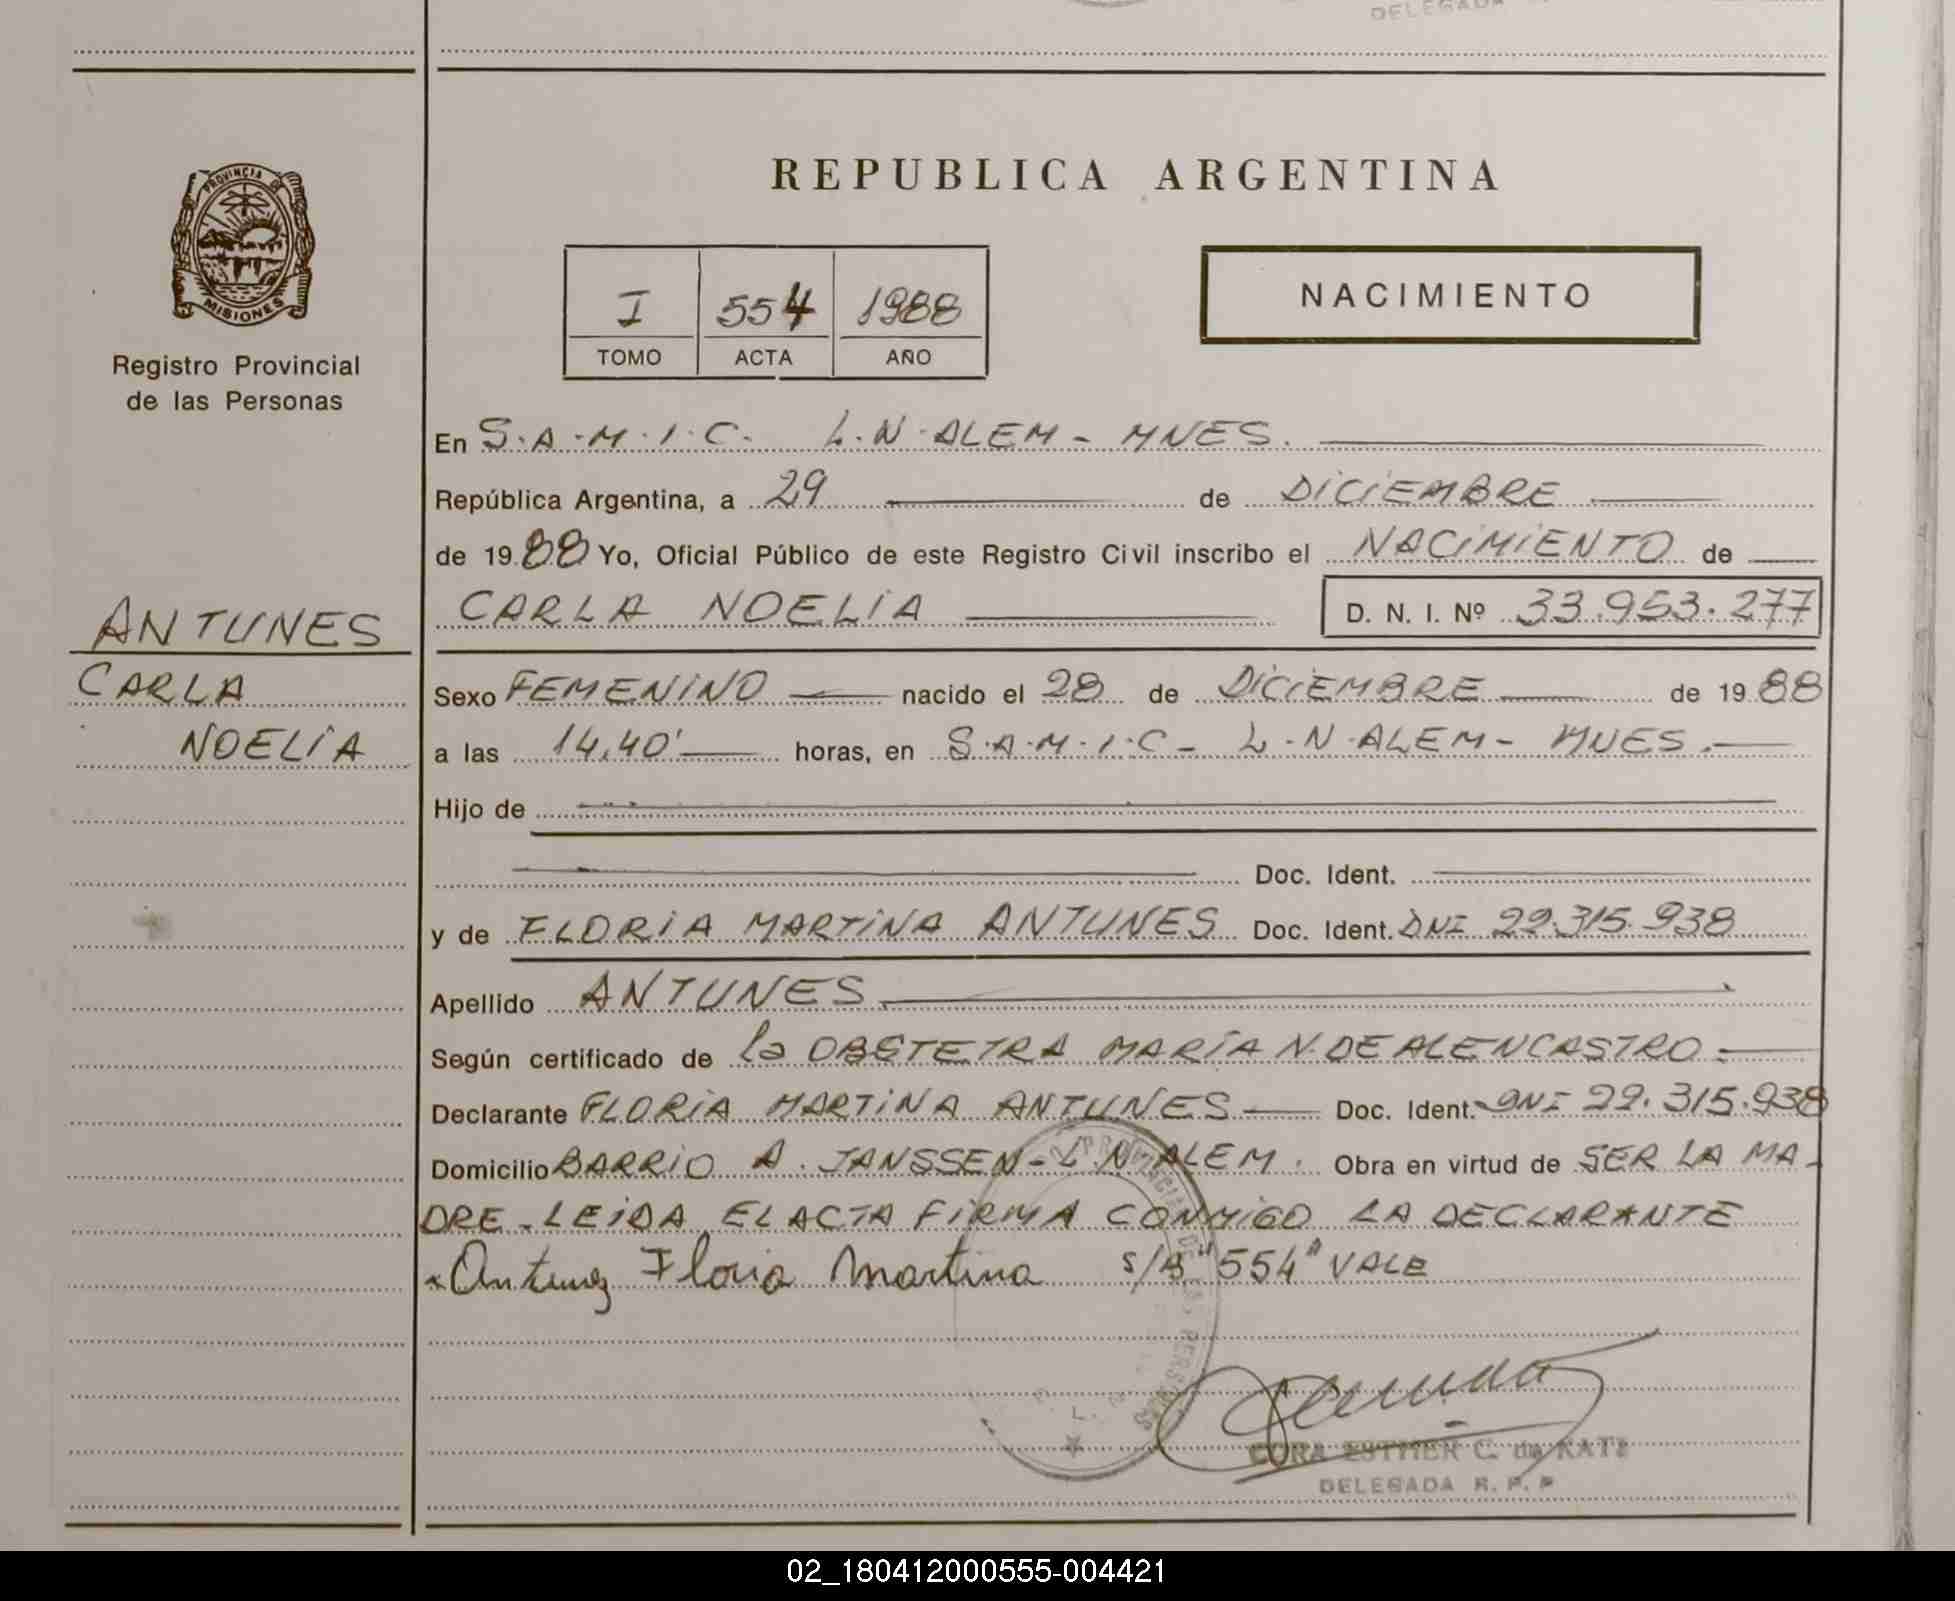 DELEGADA
PROVINCIA DE
MISIONES
Registro Provincial
de las Personas
ANTUNES
CARLA
NOELIA
REPUBLICA ARGENTINA
I 554 1988
TOMO ACTA AÑO
NACIMIENTO
En S.A.M.I.C. L.N.ALEM - MNES.
República Argentina, a 29 de DICIEMBRE
de 1988 Yo, Oficial Público de este Registro Civil inscribo el NACIMIENTO de
CARLA NOELIA D. N. I. Nº 33.953.277
Sexo FEMENINO nacido el 28 de DICIEMBRE de 1988
a las 14,40' horas, en S.A.M.I.C - L.N.ALEM - MNES.
Hijo de
Doc. Ident.
y de FLORIA MARTINA ANTUNES Doc. Ident. DNI 29.315.938
Apellido ANTUNES
Según certificado de la OBSTETRA MARIA N. DE ALENCASTRO.
Declarante FLORIA MARTINA ANTUNES Doc. Ident. DNI 29.315.938
Domicilio BARRIO A. JANSSEN - L.N ALEM. Obra en virtud de SER LA MA-
DRE - LEIDA EL ACTA FIRMA CONMIGO LA DECLARANTE
Antunez Floria Martina s/B "554" VALE
CORA ESTHER C. de KATZ
DELEGADA R. P. P
02_180412000555-004421